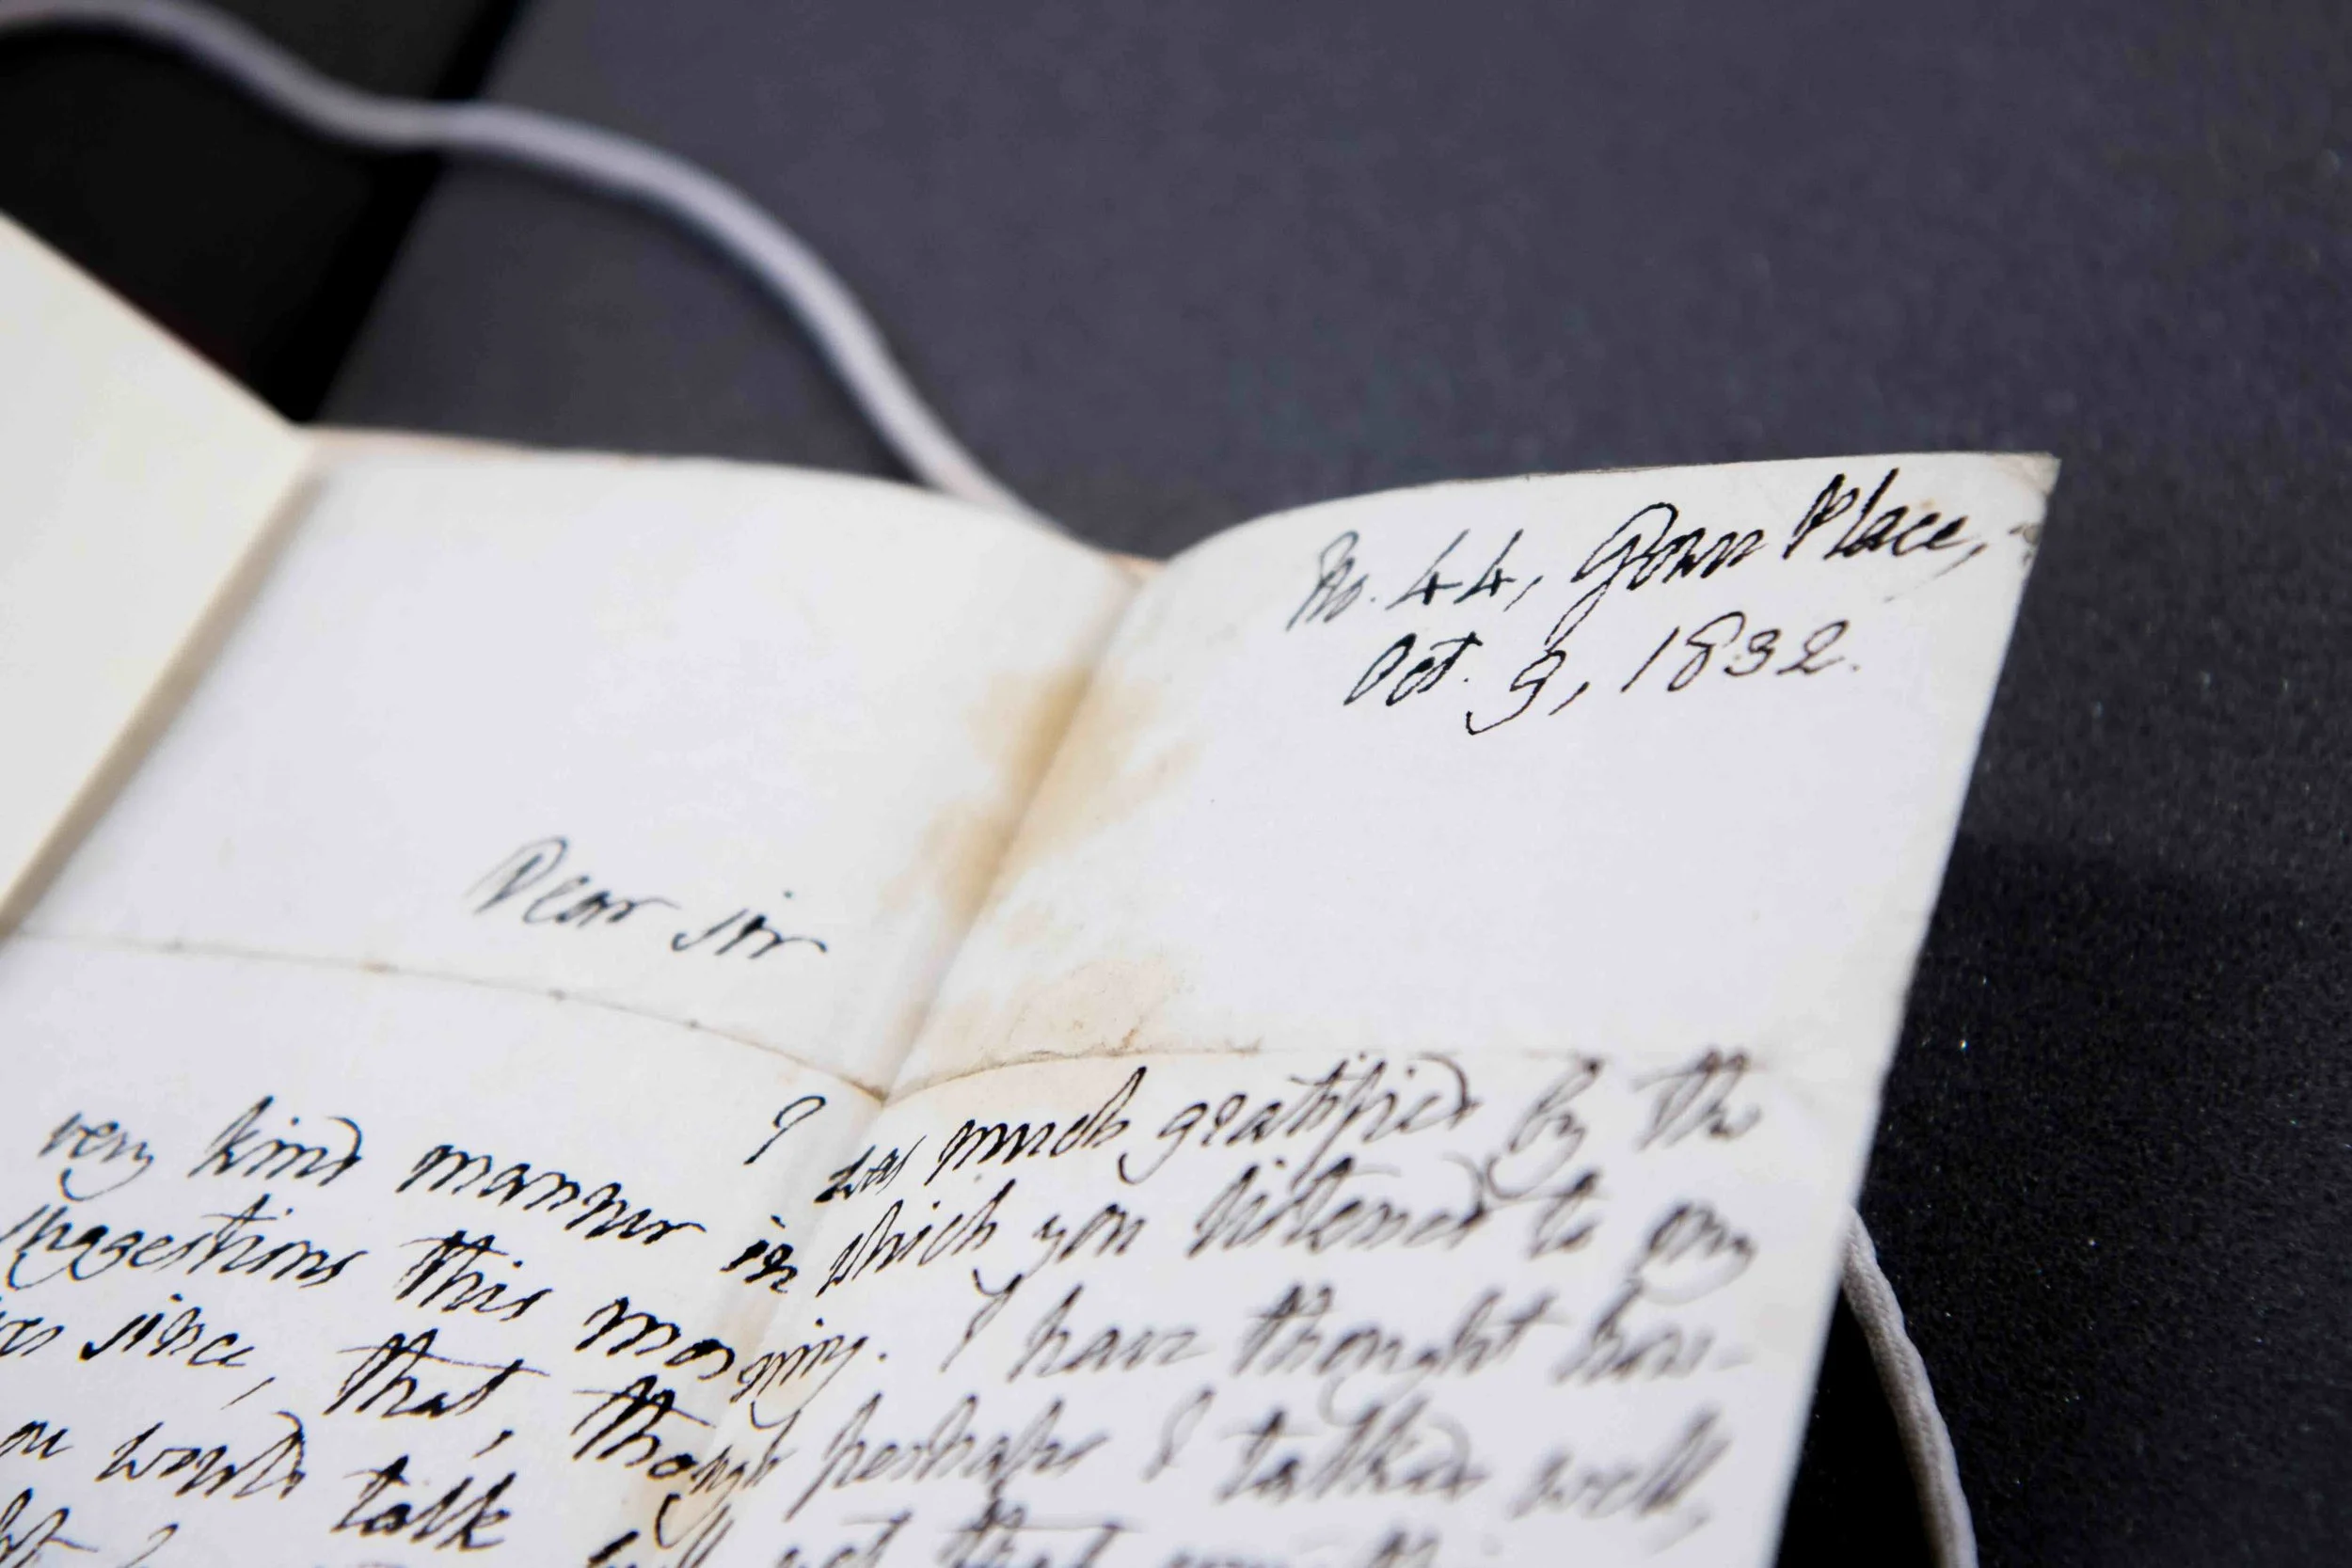 No. 44, Gower Place,
Oct. 9, 1832.
Dear Sir
I was much gratified by the
very kind manner in which you listened to my
suggestions this morning. I have thought how-
since, that, though perhaps I talked well,
would talk